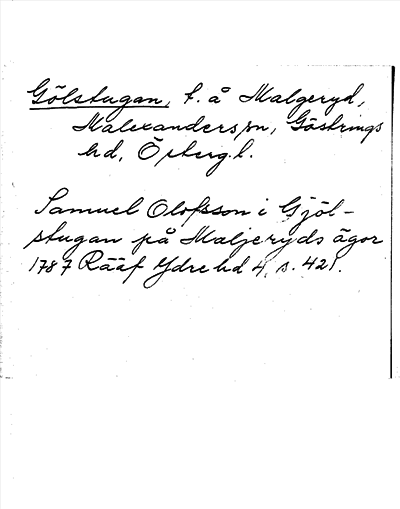 Gölstugan, t. å Malgeryd,
Malexanders sn, Göstrings
hd, Östergl.
Samuel Olofsson i Gjöl-
stugan på Maljeryds ägor
1787 Rääf Ydre hd 4, s. 421.